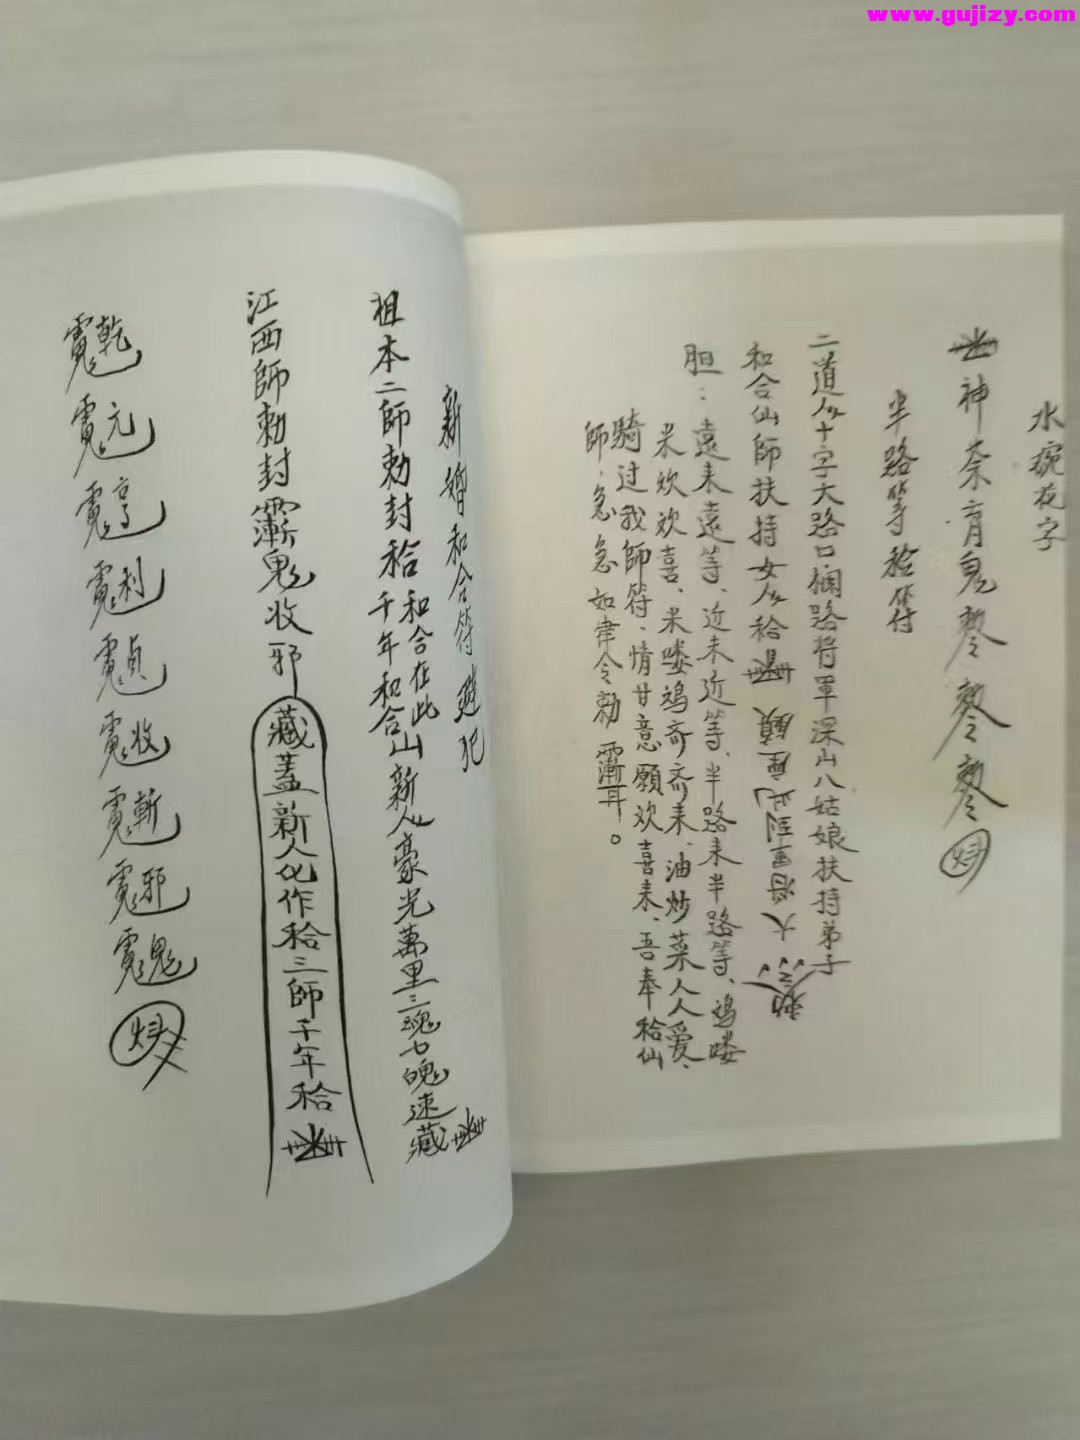 www.gujizy.com
水碗花字
神奈育鬼
半路等和合符
二道人十字大路口柵路将軍深山八姑娘扶持弟子
和合仙師扶持女人和合
勅令大将軍到此座鎮
胆：遠来遠等、近来近等、半路来半路等、鸡喽
米欢欢喜、米喽鸡斎斎来、油炒菜人人爱、
騎过我師符、情甘意願欢喜来、吾奉和合仙
師、急急如律令勅
新婚和合符避犯
祖本二師勅封和合和合在此千年和合山新人豪光萬里三魂七魄速藏
江西師勅封鬼收邪
藏蓋新人化作和合三師千年和合
乾元亨利貞收斬邪鬼